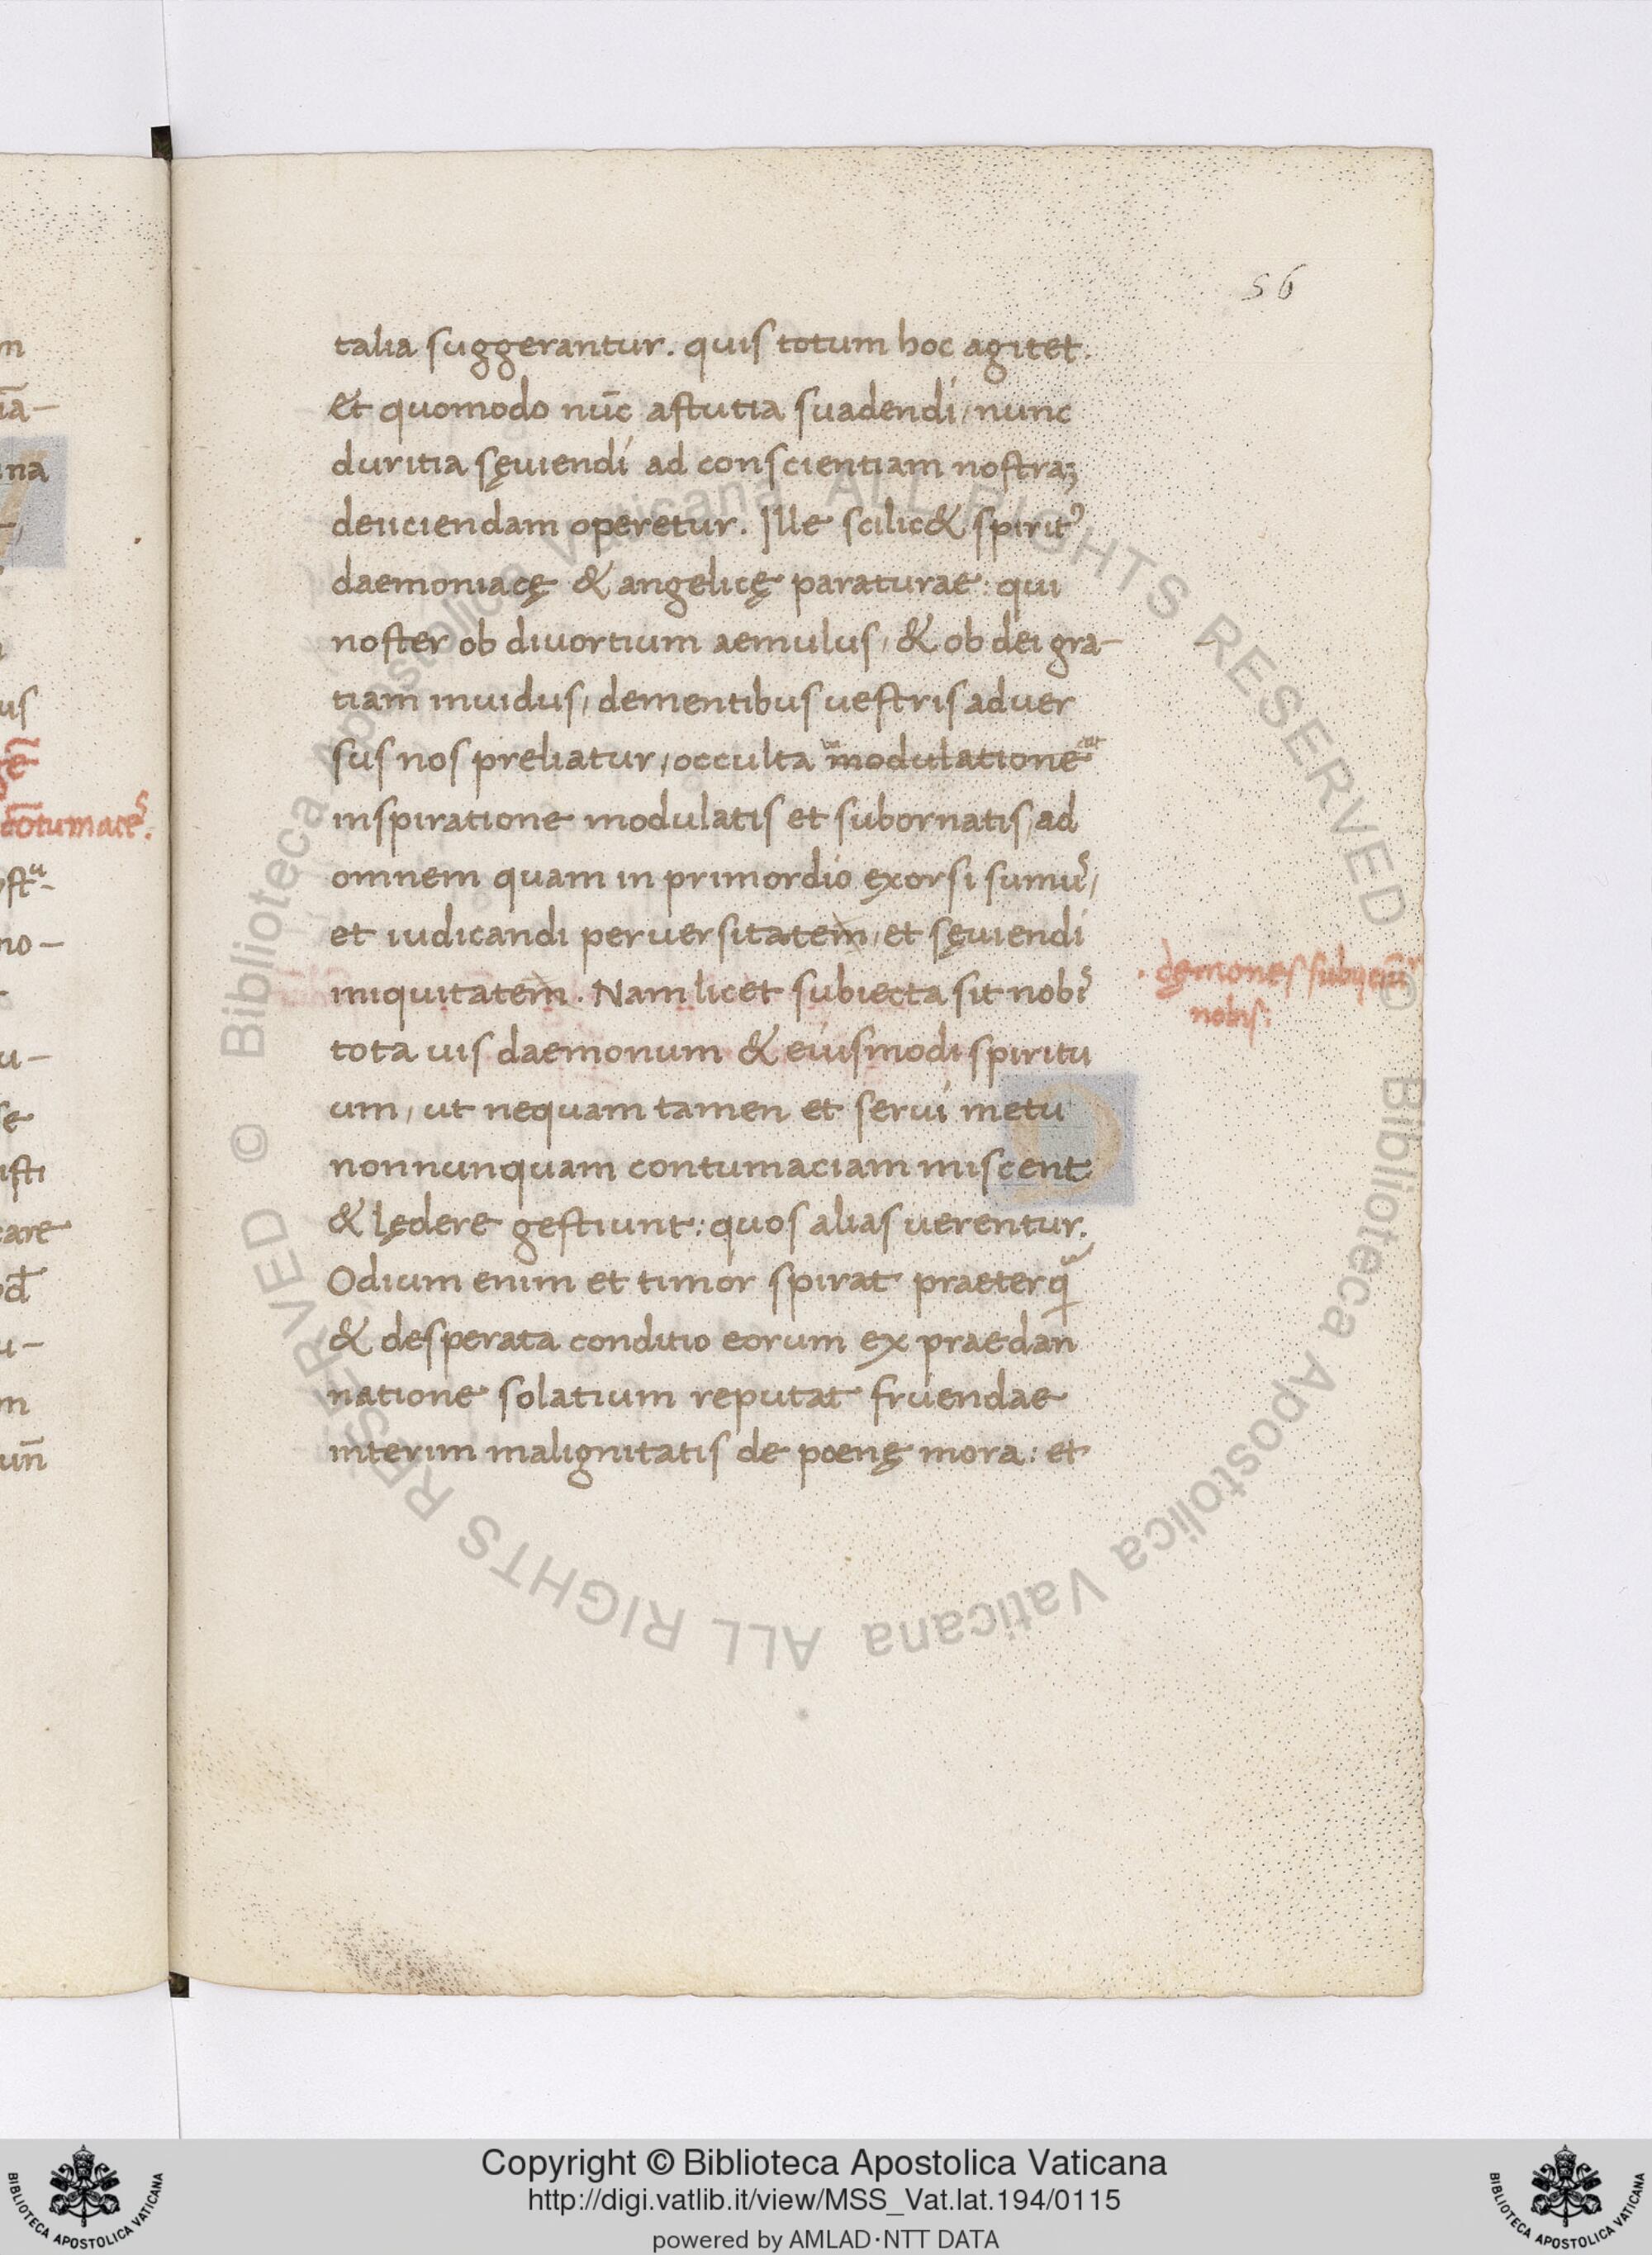 56
talia suggerantur. quis totum hoc agitet.
et quomodo nūc astutia suadendi, nunc
duritia sęuiendi ad conscientiam nostraꝫ
deiiciendam operetur. Ille scilic& spirit᾽
daemoniacę & angelicę paraturae: qui
noster ob diuortium aemulus, & ob dei gra-
tiam inuidus, dementibus uestris aduer
sus nos preliatur, occulta modulatione
inspiratione modulatis et subornatis, ad
omnem quam in primordio exorsi sumuˢ,
et iudicandi peruersitatem, et sęuiendi
iniquitatem. Nam licet subiecta sit nobiˢ
tota uis daemonum & eiusmodi spiritu
um, ut nequam tamen et serui metu
nonnunquam contumaciam miscent
& lędere gestiunt: quos alias uerentur.
Odium enim et timor spirat praeterqᷓ
& desperata conditio eorum ex praedan
natione solatium reputat fruendae
interim malignitatis de poenę mora: et
dęmones
nobis:
© Biblioteca Apostolica Vaticana ALL RIGHTS RESERVED
© Biblioteca Apostolica Vaticana ALL RIGHTS RESERVED
Copyright © Biblioteca Apostolica Vaticana
http://digi.vatlib.it/view/MSS_Vat.lat.194/0115
powered by AMLAD·NTT DATA
BIBLIOTECA APOSTOLICA VATICANA
BIBLIOTECA APOSTOLICA VATICANA